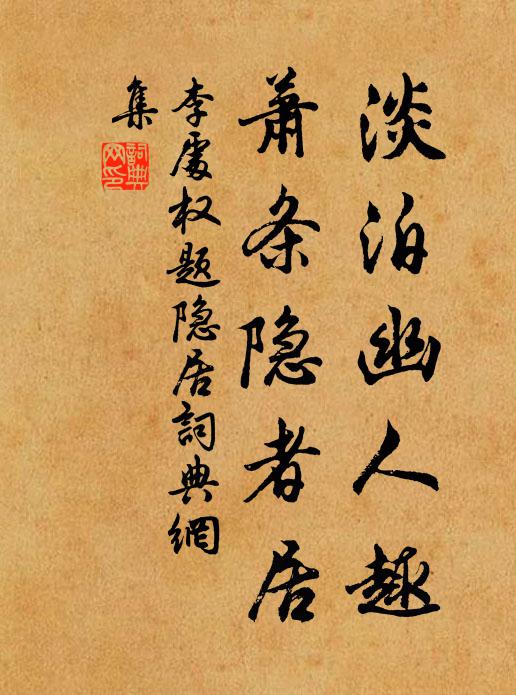 淡泊幽人趣
萧条隐者居
李處权题隐居詞典網
集
詞典
网印